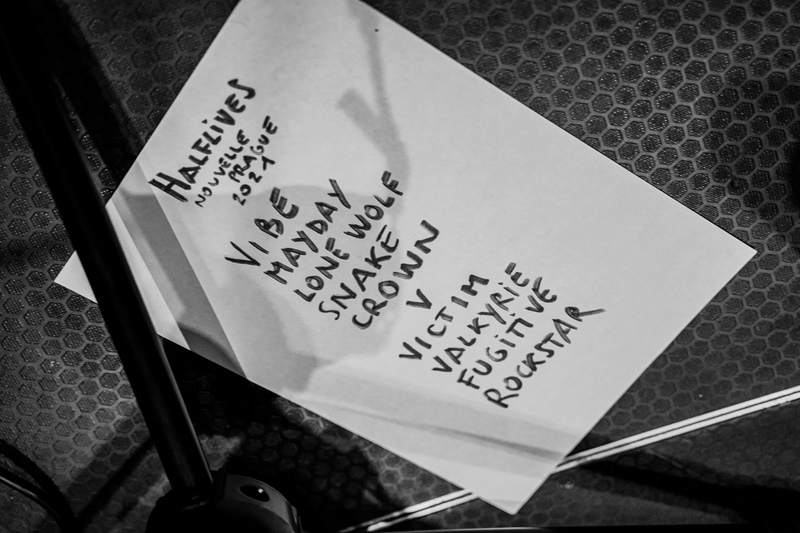 HALFLIVES
NOUVELLE
PRAGUE
2021
VIBE
MAYDAY
LONE WOLF
SNAKE
CROWN
V
VICTIM
VALKYRIE
FUGITIVE
ROCKSTAR